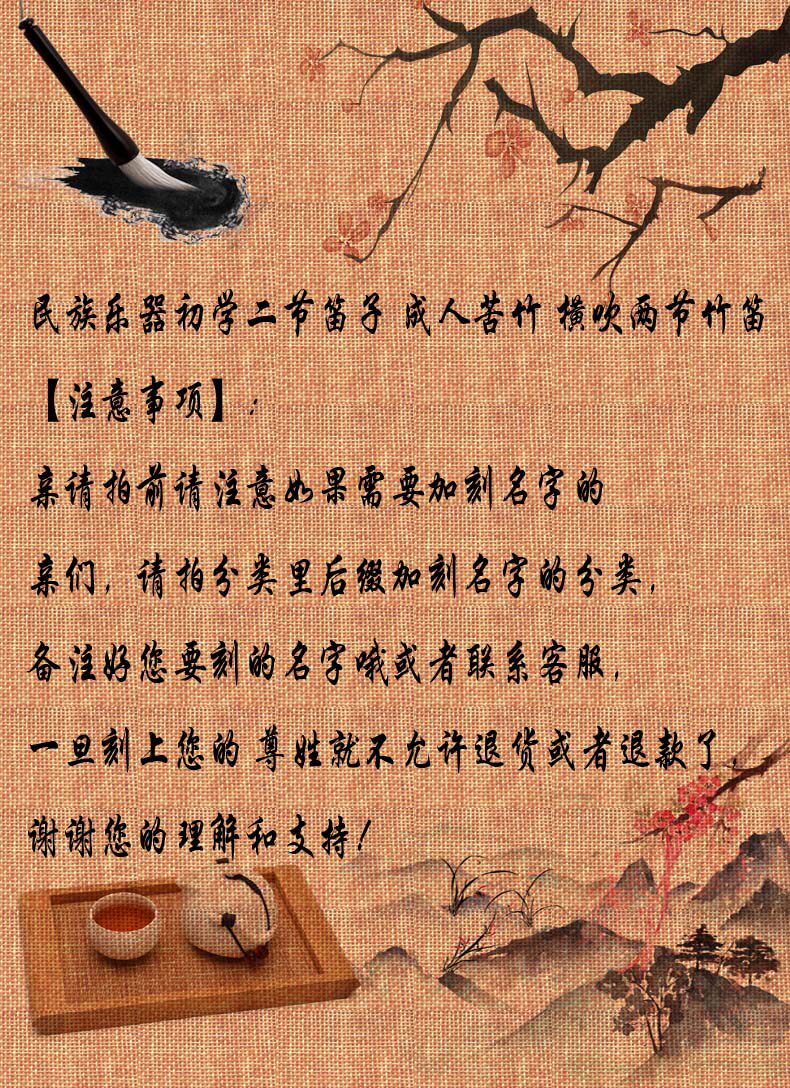 民族乐器初学二节笛子 成人苦竹 横吹两节竹笛
【注意事项】：
亲请拍前请注意如果需要加刻名字的
亲们，请拍分类里后缀加刻名字的分类，
备注好您要刻的名字哦或者联系客服，
一旦刻上您的 尊姓就不允许退货或者退款了，
谢谢您的理解和支持！